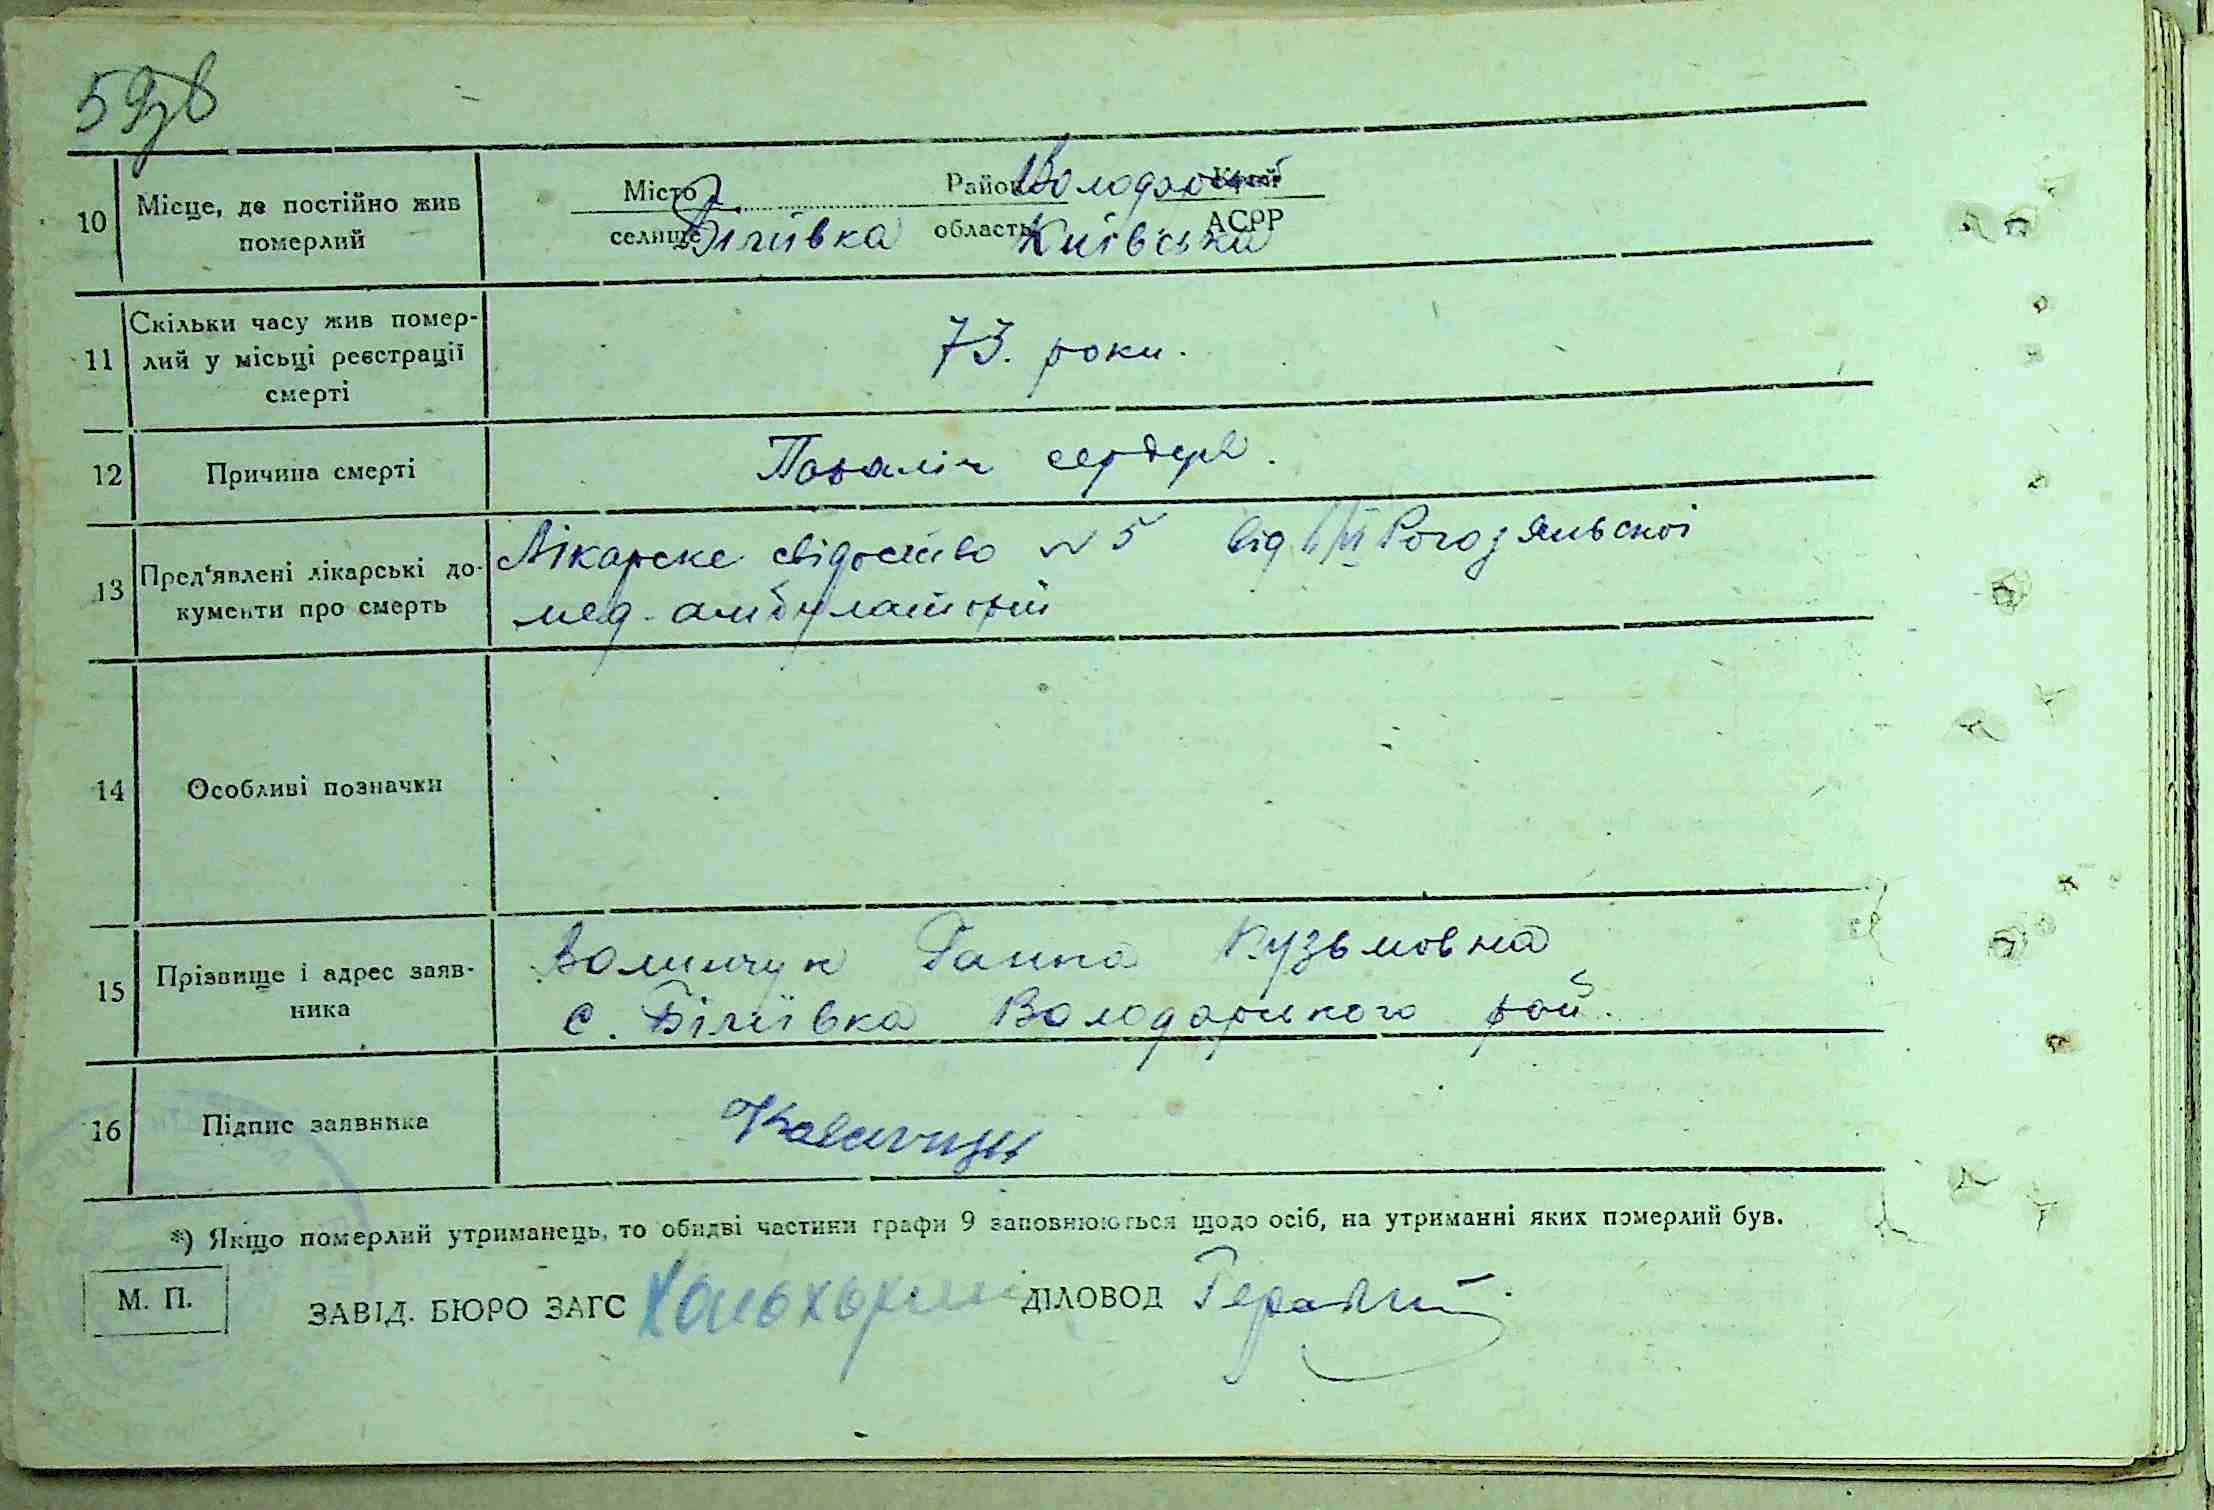 59зв
10 Місце, де постійно жив померлий
Місто Район Володарськ Край
селище Білиївка область Київська АСРР
11 Скільки часу жив помер-
лий у місьці реєстрації
смерті
73. роки.
12 Причина смерті
Пораліч сердця.
13 Пред‘явлені лікарські до-
кументи про смерть
Лікарске свідоство № 5 від
мед-амбулаторії
14 Особливі позначки
15 Прізвище і адрес заяв-
ника
Волинчук Ганна Кузьмовна
с. Біліївка Володарського рай.
16 Підпис заявника
*) Якщо померлий утриманець, то обидві частини графи 9 заповнюються щодо осіб, на утриманні яких померлий був.
М. П.
ЗАВІД. БЮРО ЗАГС ДІЛОВОД